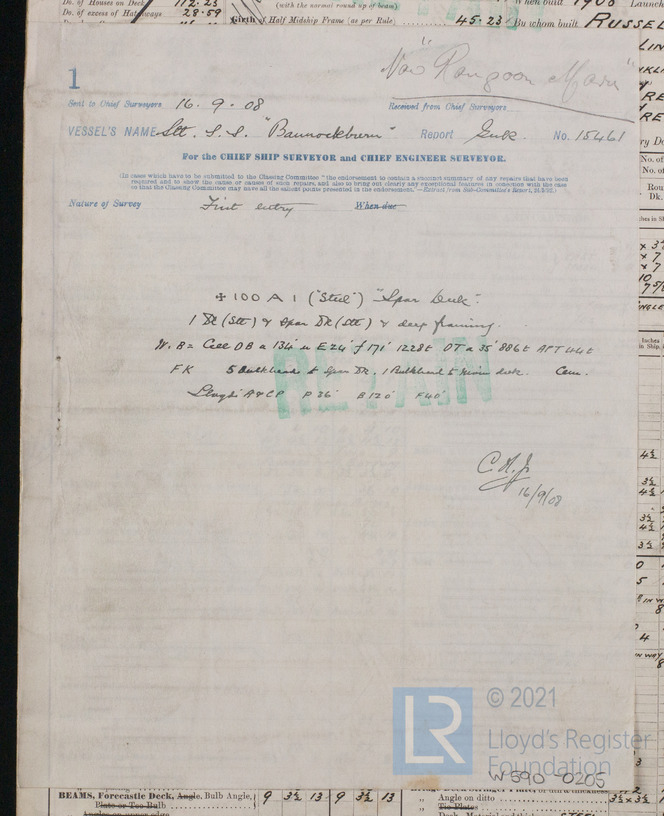 Do. of Houses on Deck 112.23
(with the normal round up of beam)
When built 1908 Launch
Do. of excess of Hatchways 28.59
Girth of Half Midship Frame (as per Rule) 45.23
By whom built RUSSEL
"Now Rangoon Maru"
1
Sent to Chief Surveyors 16.9.08
Received from Chief Surveyors
VESSEL'S NAME Stl. S.S. "Bannockburn" Report Gnk. No. 15461
For the CHIEF SHIP SURVEYOR and CHIEF ENGINEER SURVEYOR.
(In cases which have to be submitted to the Classing Committee "the endorsement to contain a succinct summary of any repairs that have been
required and to show the cause or causes of such repairs, and also to bring out clearly any exceptional features in connection with the case
so that the Classing Committee may have all the salient points presented in the endorsement."—Extract from Sub-Committee's Report,
Nature of Survey First entry When due
✠ 100 A 1 ("Steel") "Spar Deck".
1 Dk (Stl) & Spar Dk (Stl) & deep framing.
W.B = Cell DB a 134' u E 24' f 171' 1228t DT a 35' 886t APT 44t
FK 5 Bulkheads to Spar Dk. 1 Bulkhead to Main deck. Cem.
Lloyd's A & CP P 36' B 120' F 40'
RETAIN
16/9/08
LR
© 2021
Lloyd's Register
Foundation
W590-0205
BEAMS, Forecastle Deck, Angle, Bulb Angle, 9 3½ 13 9 3½ 13
Plate or Tee Bulb
" Angle on ditto 3½ x 3½
" Tie Plates